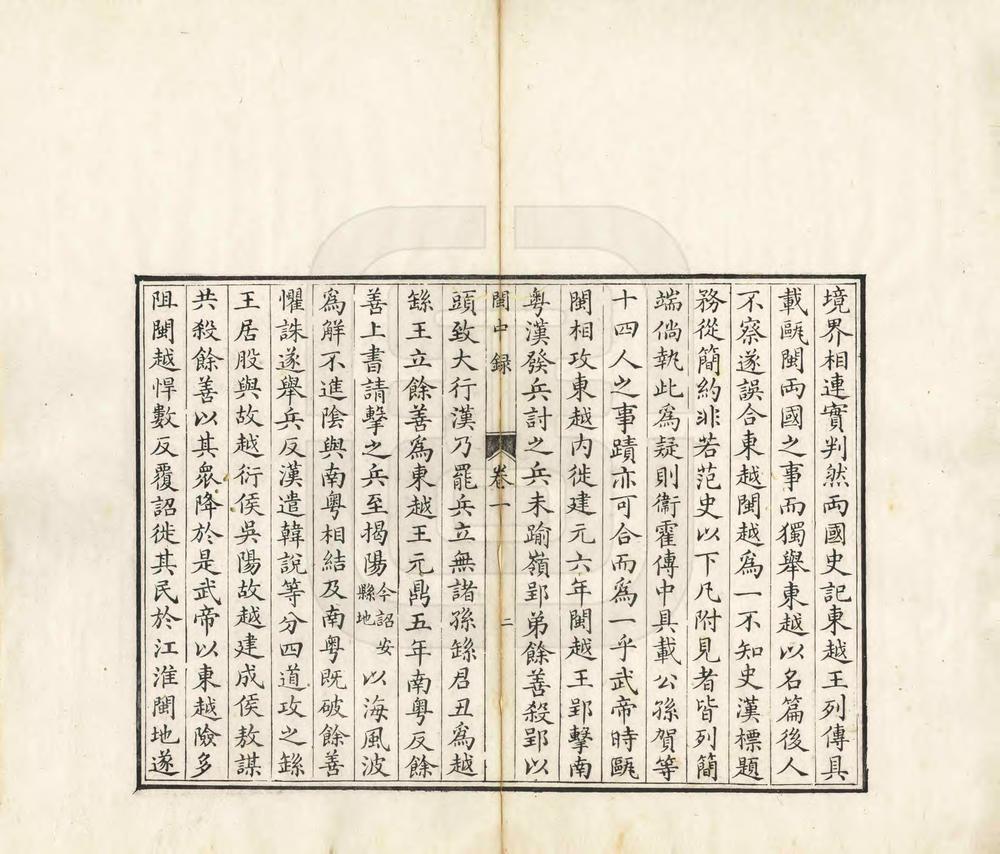 境界相連實判然両國史記東越王列傳具
載甌閩両國之事而獨舉東越以名篇後人
不察遂誤合東越閩越為一不知史漢標題
務從簡約非若范史以下凡附見者皆列簡
端倘執此為疑則衛霍傳中具載公孫賀等
十四人之事蹟亦可合而為一乎武帝時甌
閩相攻東越内徙建元六年閩越王郢擊南
粤漢發兵討之兵未踰嶺郢弟餘善殺郢以
閩中録 卷一 二
頭致大行漢乃罷兵立無諸孫繇君丑為越
繇王立餘善為東越王元鼎五年南粤反餘
善上書請擊之兵至揭陽今詔安縣地以海風波
為解不進陰與南粤相結及南粤既破餘善
懼誅遂舉兵反漢遣韓說等分四道攻之繇
王居股與故越衍侯吳陽故越建成侯敖謀
共殺餘善以其衆降於是武帝以東越險多
阻閩越悍數反覆詔徙其民於江淮閩地遂